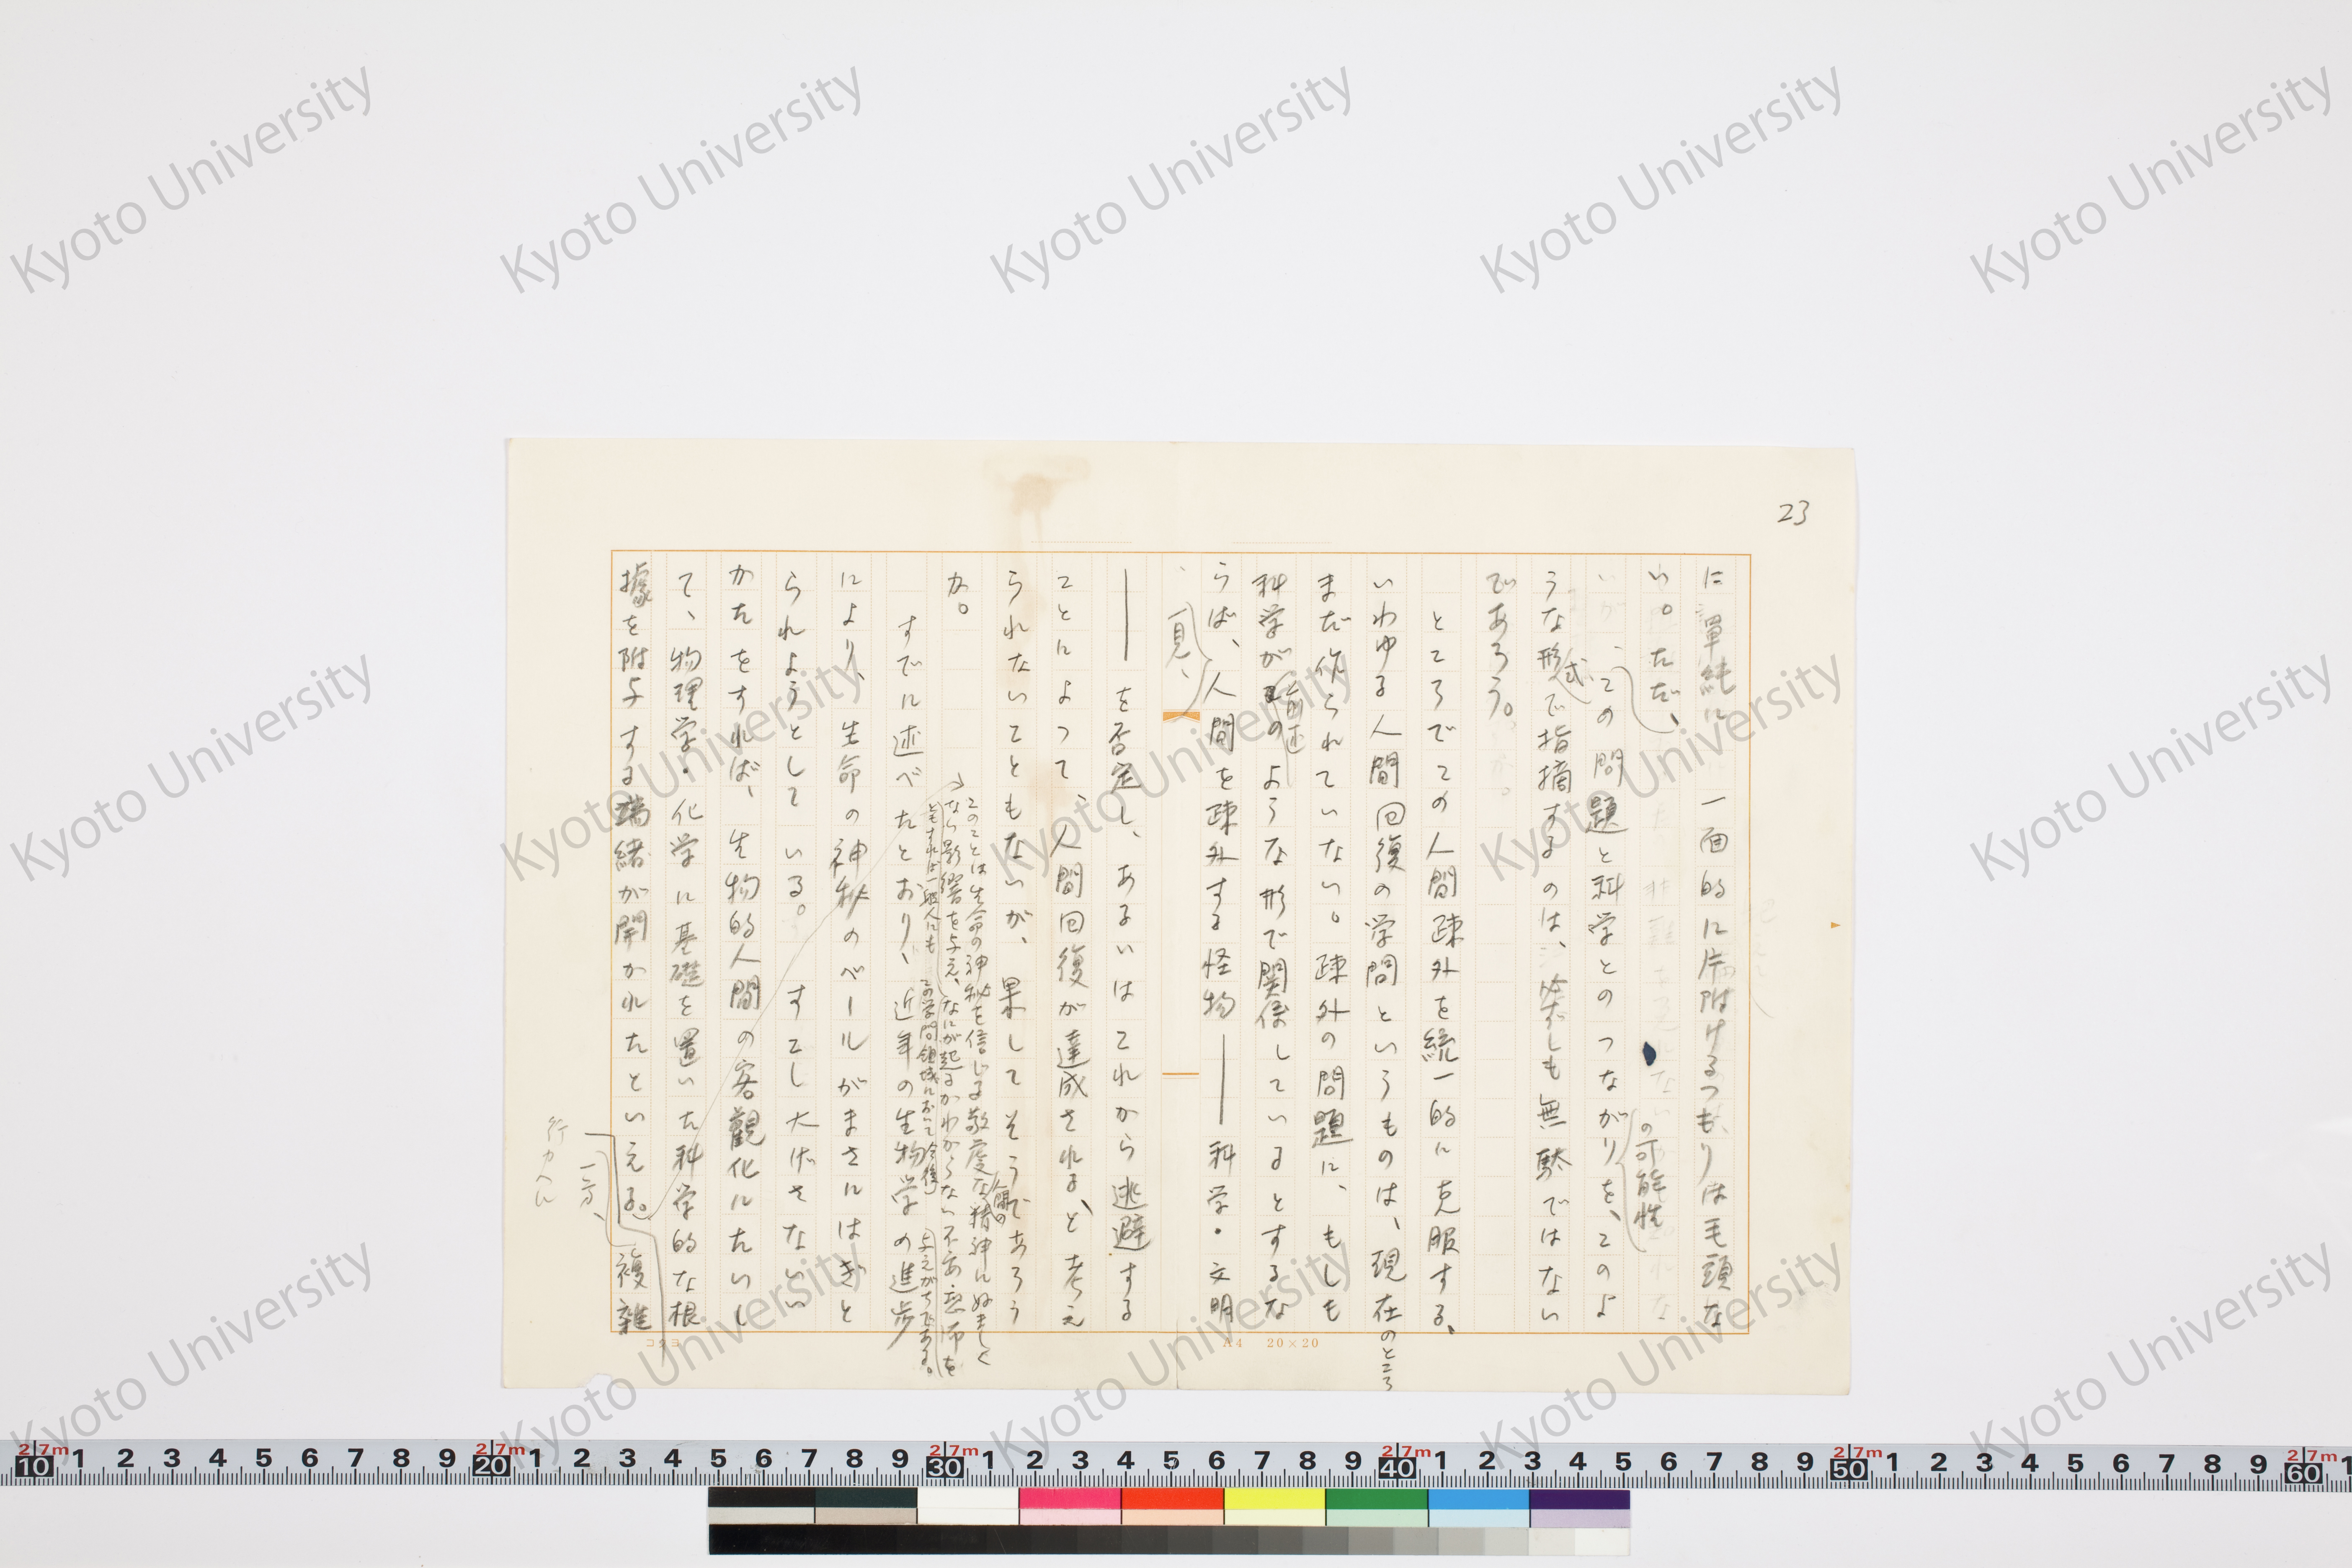 23
に單純に一面的に片附けるつもりは毛頭な
い。ただ、
この問題と科学とのつながりの可能性を、このよ
うな形式で指摘するのは、必ずしも無駄ではない
であろう。
ところでこの人間疎外を統一的に克服する、
いわゆる人間回復の学問というものは、現在のところ
まだ作られていない。疎外の問題に、もしも
科学が前述のような形で関係しているとするな
らば、人間を疎外する怪物――科学・文明
――を否定し、あるいはこれから逃避する
ことによって、一見、人間回復が達成される、と考え
られないこともないが、果してそうであろう
か。
このことは生命の神秘を信じる敬虔な人間の精神に好ましく
ない影響を与え、なにが起るかわからない不安・恐怖を
ともすれば一般人にも
この学問領域において今後
与えがちである。
すでに述べたとおり、近年の生物学の進歩
により、生命の神秘のベールがまさにはぎと
られようとしている。すこし大げさないい
かたをすれば、生物的人間の客觀化にたいし
て、物理学・化学に基礎を置いた科学的な根
據を附与する端緒が開かれたといえる。複雜
一方、
行カヘに
コクヨ
A4 20×20
Kyoto University